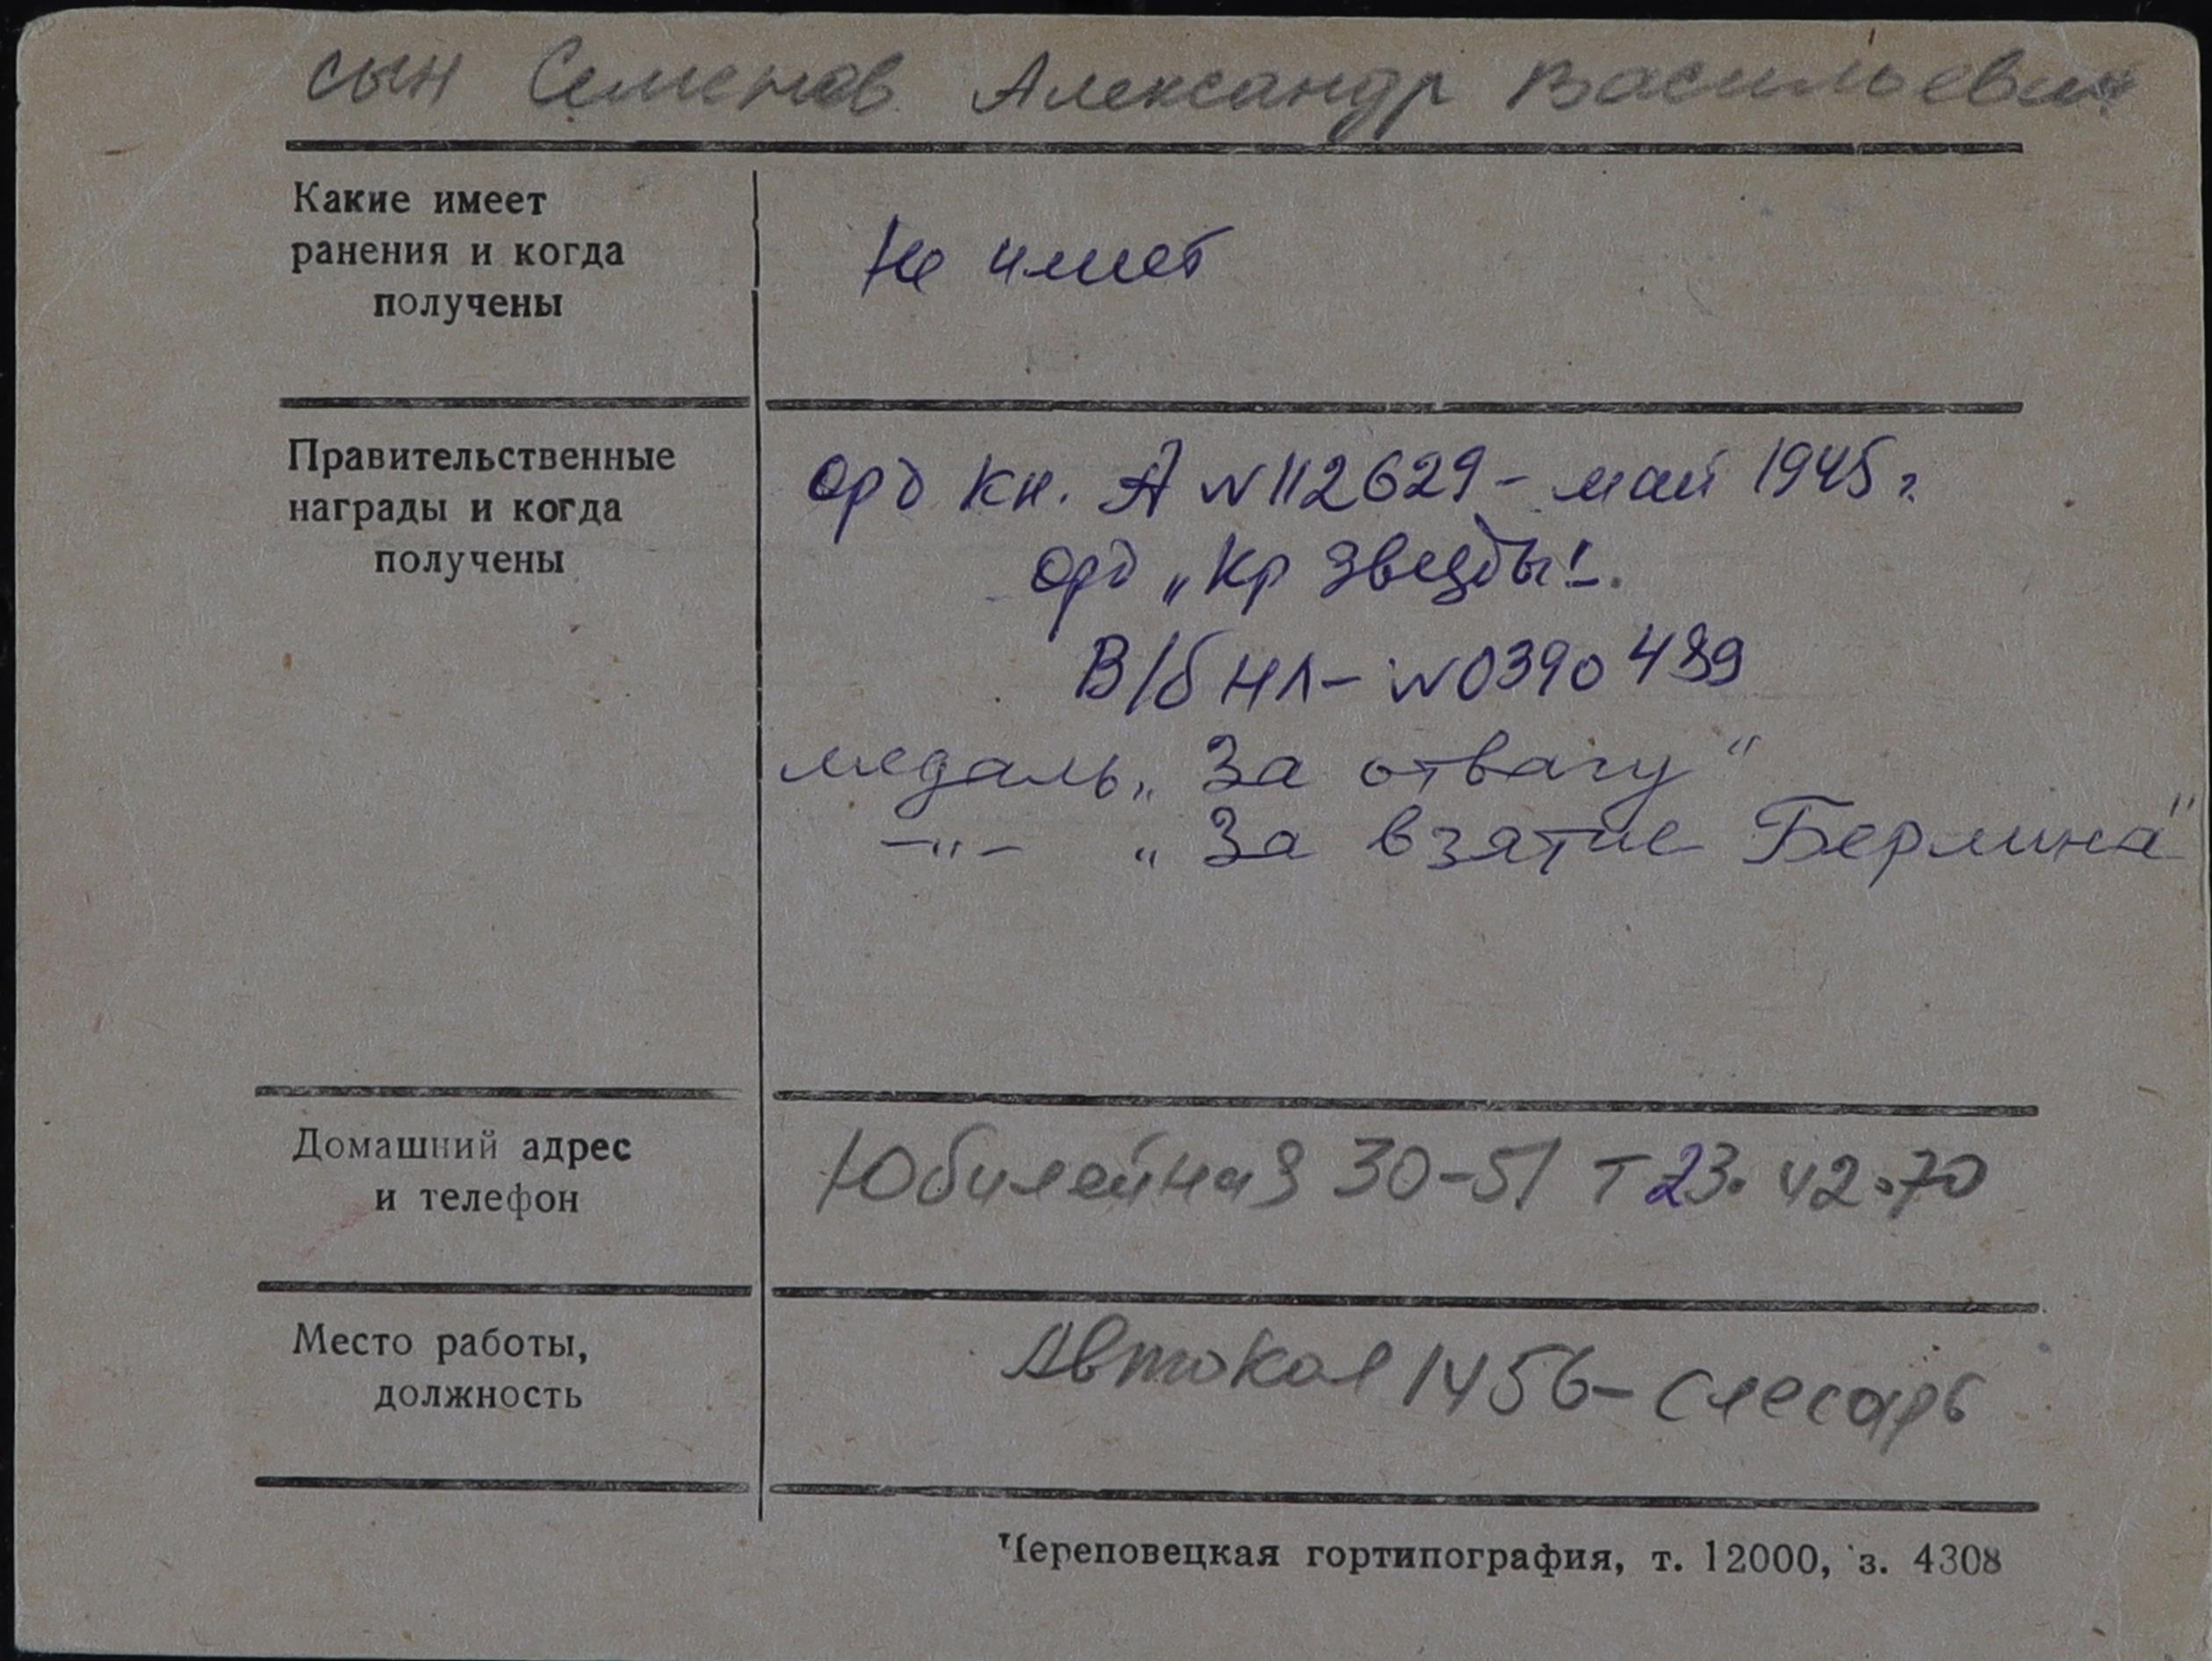 сын Семенов Александр Васильевич
Какие имеет
ранения и когда
получены
Не имеет
Правительственные
награды и когда
получены
орд кн. А №112629 - май 1945 г
орд „Кр звезды".
В/б НЛ - №0390489
медаль „За отвагу"
-"- „За взятие Берлина"
Домашний адрес
и телефон
Юбилейная 30-51 т 23.42.70
Место работы,
должность
Автокол 1456 - слесарь
Череповецкая гортипография, т. 12000, з. 4308